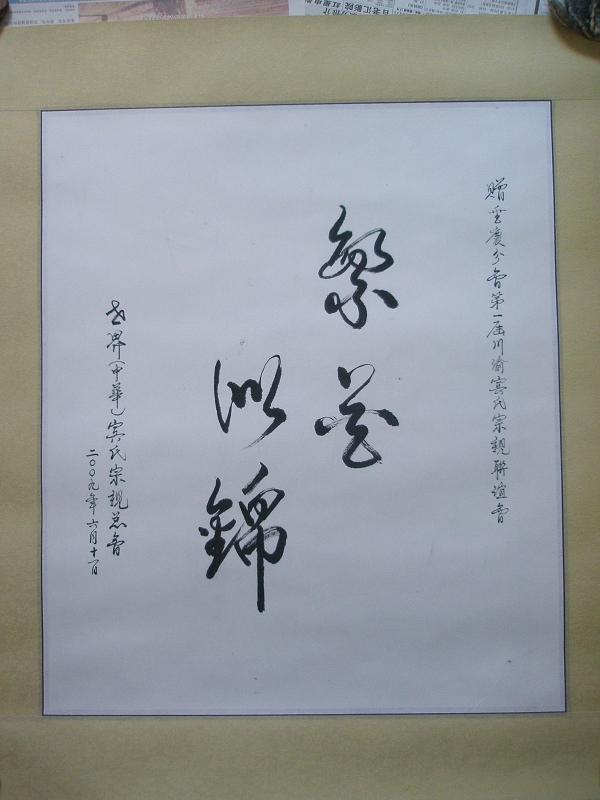 贈重慶分會第一届川渝賓氏宗親聯誼會
繁花
似錦
世界(中華)賓氏宗親总會
二〇〇九年六月十一日